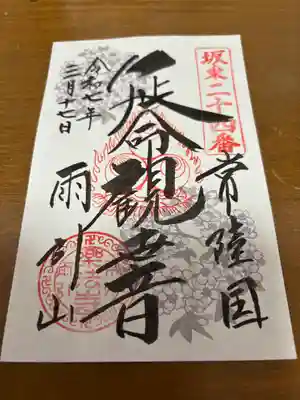 坂東二十四番
常陸国
延命観音
雨引山
令和七年
三月十七日